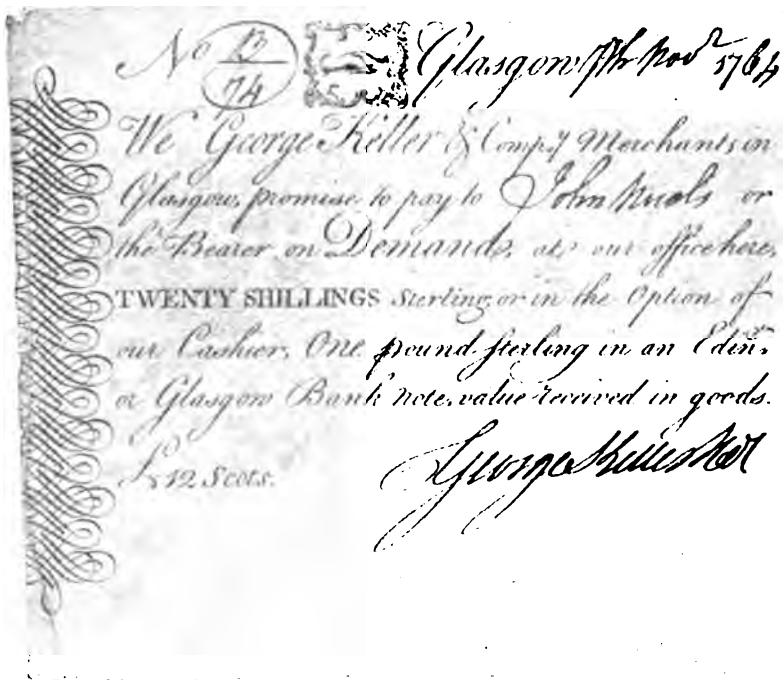 No 13/74 Glasgow 7th Novr 1764
We George Keller & Compy Merchants in
Glasgow, promise to pay to John or
the Bearer on Demand, at our office here,
TWENTY SHILLINGS Sterling, or in the Option of
our Cashier, One pound sterling in an Edinr.
or Glasgow Bank note, value received in goods.
£12 Scots.
George Keller